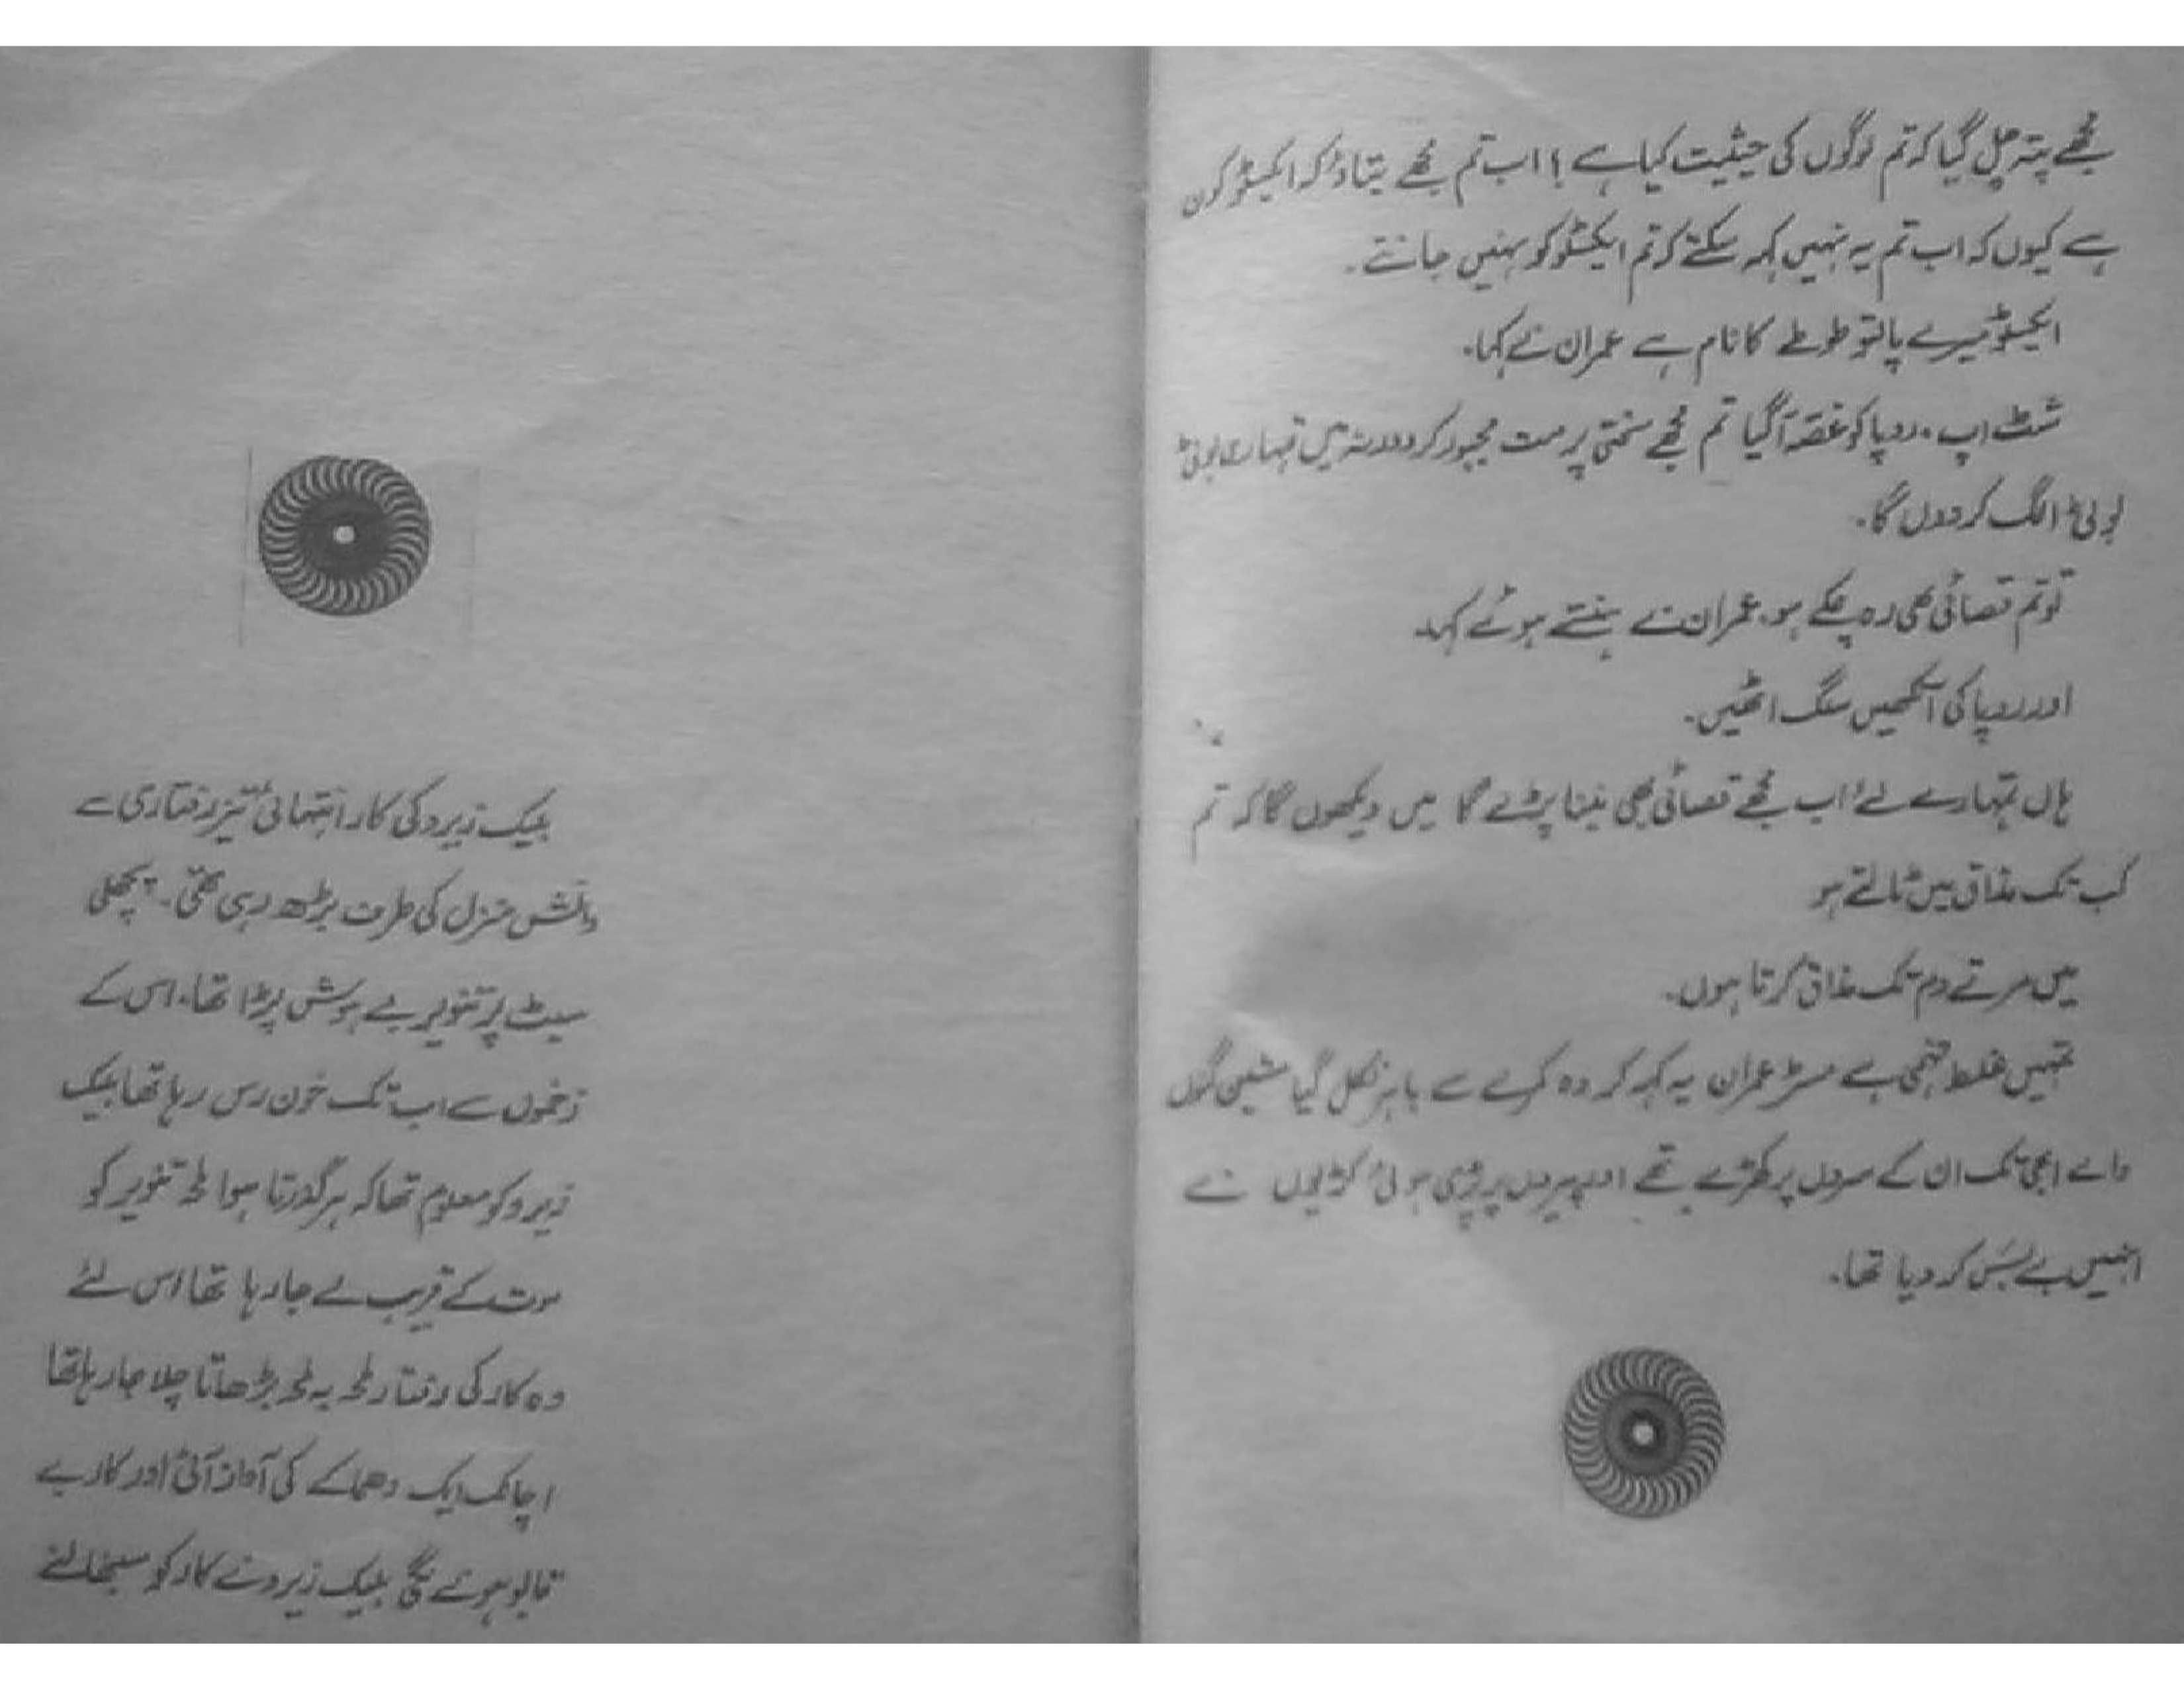 مجھے پتہ چل گیا کہ تم لوگوں کی حیثیت کیا ہے ! اب تم مجھے بتاؤ کہ ایکسٹو کون
ہے کیوں کہ اب تم یہ نہیں کہہ سکتے کہ تم ایکسٹو کو نہیں جانتے۔
ایکسٹو میرے پالتو طوطے کا نام ہے عمران نے کہا۔
شٹ اپ۔ روپا کو غصہ آگیا تم مجھے سختی پر مت مجبور کرو ورنہ میں تمہاری بوٹی
بوٹی الگ کردوں گا۔
تو تم قصائی بھی رہ چکے ہو۔ عمران نے ہنستے ہوئے کہا۔
اور روپا کی آنکھیں سلگ اٹھیں۔
ہاں تمہارے لئے اب مجھے قصائی بھی بننا پڑے گا میں دیکھوں گا کہ تم
کب تک مذاق میں ٹالتے ہو
میں مرتے دم تک مذاق کرتا ہوں۔
تمہیں غلط فہمی ہے مسٹر عمران یہ کہہ کر وہ کمرے سے باہر نکل گیا مشین گنوں
والے ابھی تک ان کے سروں پر کھڑے تھے اور پیروں پر پڑی ہوئی کڑیوں نے
انہیں بے بس کر دیا تھا۔
بلیک زیرو کی کار انتہائی تیز رفتاری سے
دانش منزل کی طرف بڑھ رہی تھی۔ پچھلی
سیٹ پر تنویر بے ہوش پڑا تھا۔ اس کے
زخموں سے اب تک خون رس رہا تھا بلیک
زیرو کو معلوم تھا کہ ہر گذرتا ہوا لمحہ تنویر کو
موت کے قریب لے جا رہا تھا اس لئے
وہ کار کی رفتار لمحہ بہ لمحہ بڑھاتا چلا جا رہا تھا
اچانک ایک دھماکے کی آواز آئی اور کار بے
قابو ہونے لگی بلیک زیرو نے کار کو سنبھالنے